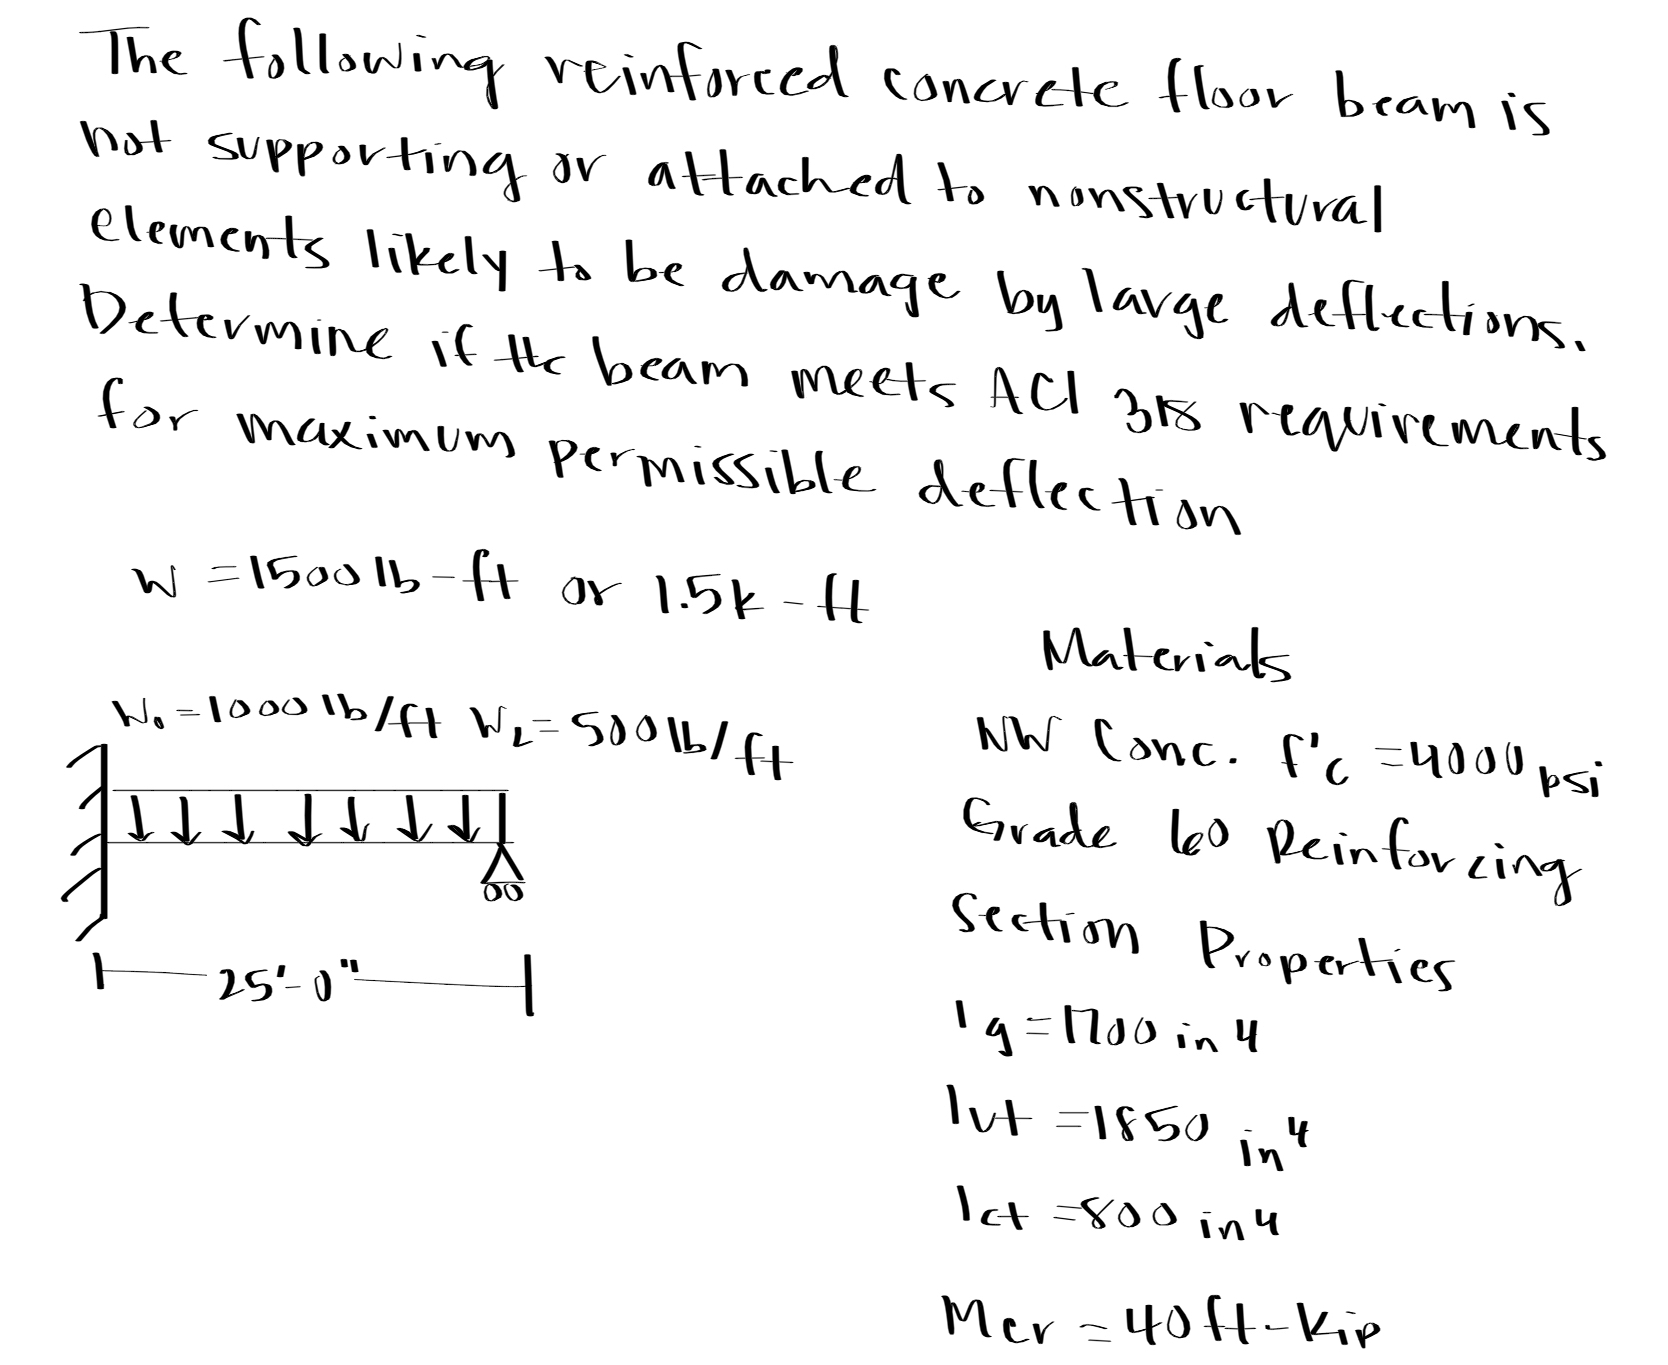 The following reinforced concrete floor beam is
not supporting or attached to nonstructural
elements likely to be damage by large deflections.
Determine if the beam meets ACI 318 requirements
for maximum permissible deflection
W = 1500 lb-ft or 1.5k-ft
Materials
W₀ = 1000 lb/ft W_L = 500 lb/ft
NW Conc. f'c = 4000 psi
Grade 60 Reinforcing
Section Properties
25'-0"
Ig = 1700 in 4
Iut = 1850 in⁴
Ict = 800 in 4
Mcr = 40 ft-kip